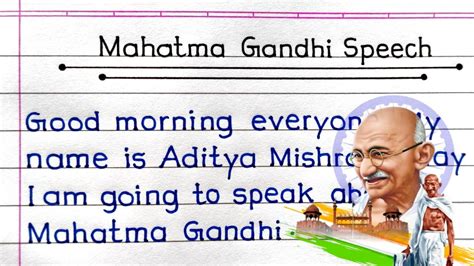 Mahatma Gandhi Speech
Good morning everyon
name is Aditya Mishr
I am going to speak
Mahatma Gandhi